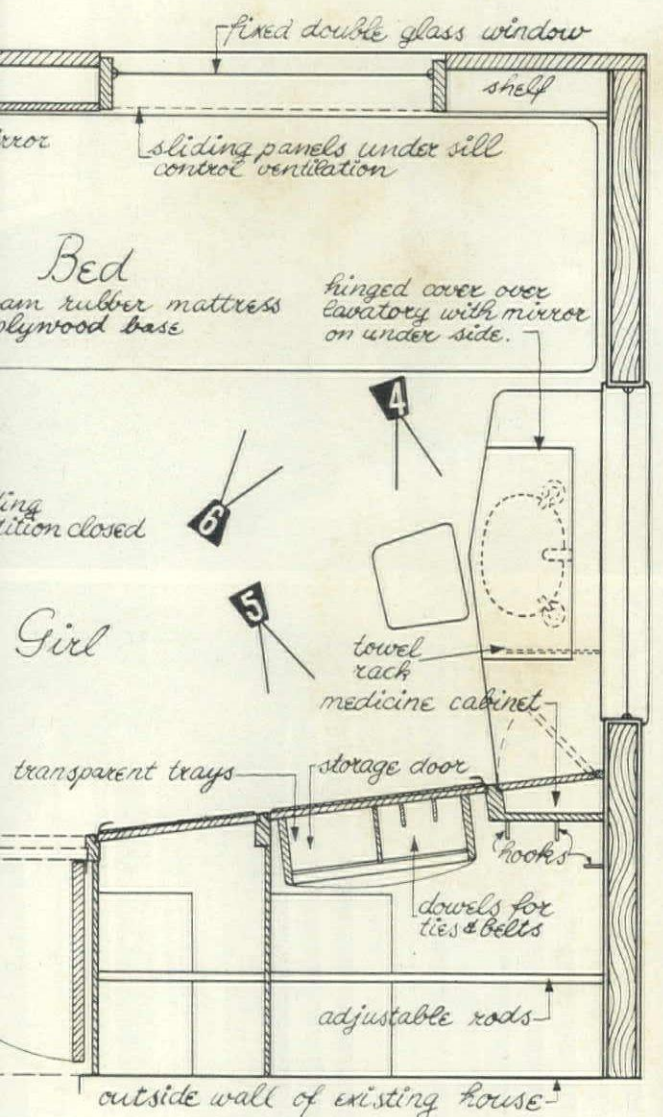 fixed double glass window
shelf
sliding panels under sill
control ventilation
Bed
rubber mattress
plywood base
hinged cover over
lavatory with mirror
on under side.
4
6
closed
5
Girl
towel
rack
medicine cabinet
transparent trays
storage door
hooks
dowels for
ties & belts
adjustable rods
outside wall of existing house